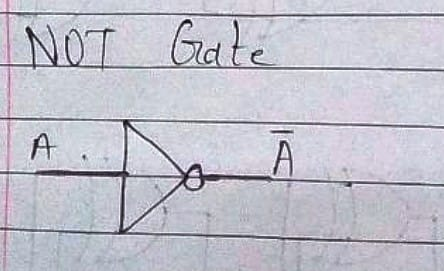 NOT Gate
A Ā